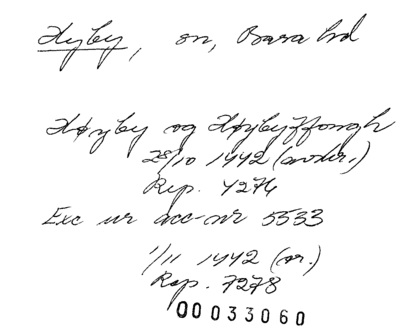 Hyby, sn, Bara hd
Høyby og Høybyffongh
28/10 1442 (avskr.)
Rep. 7276
Exc ur acc-nr 5533
1/11 1442 (or.)
Rep. 7278
00033060